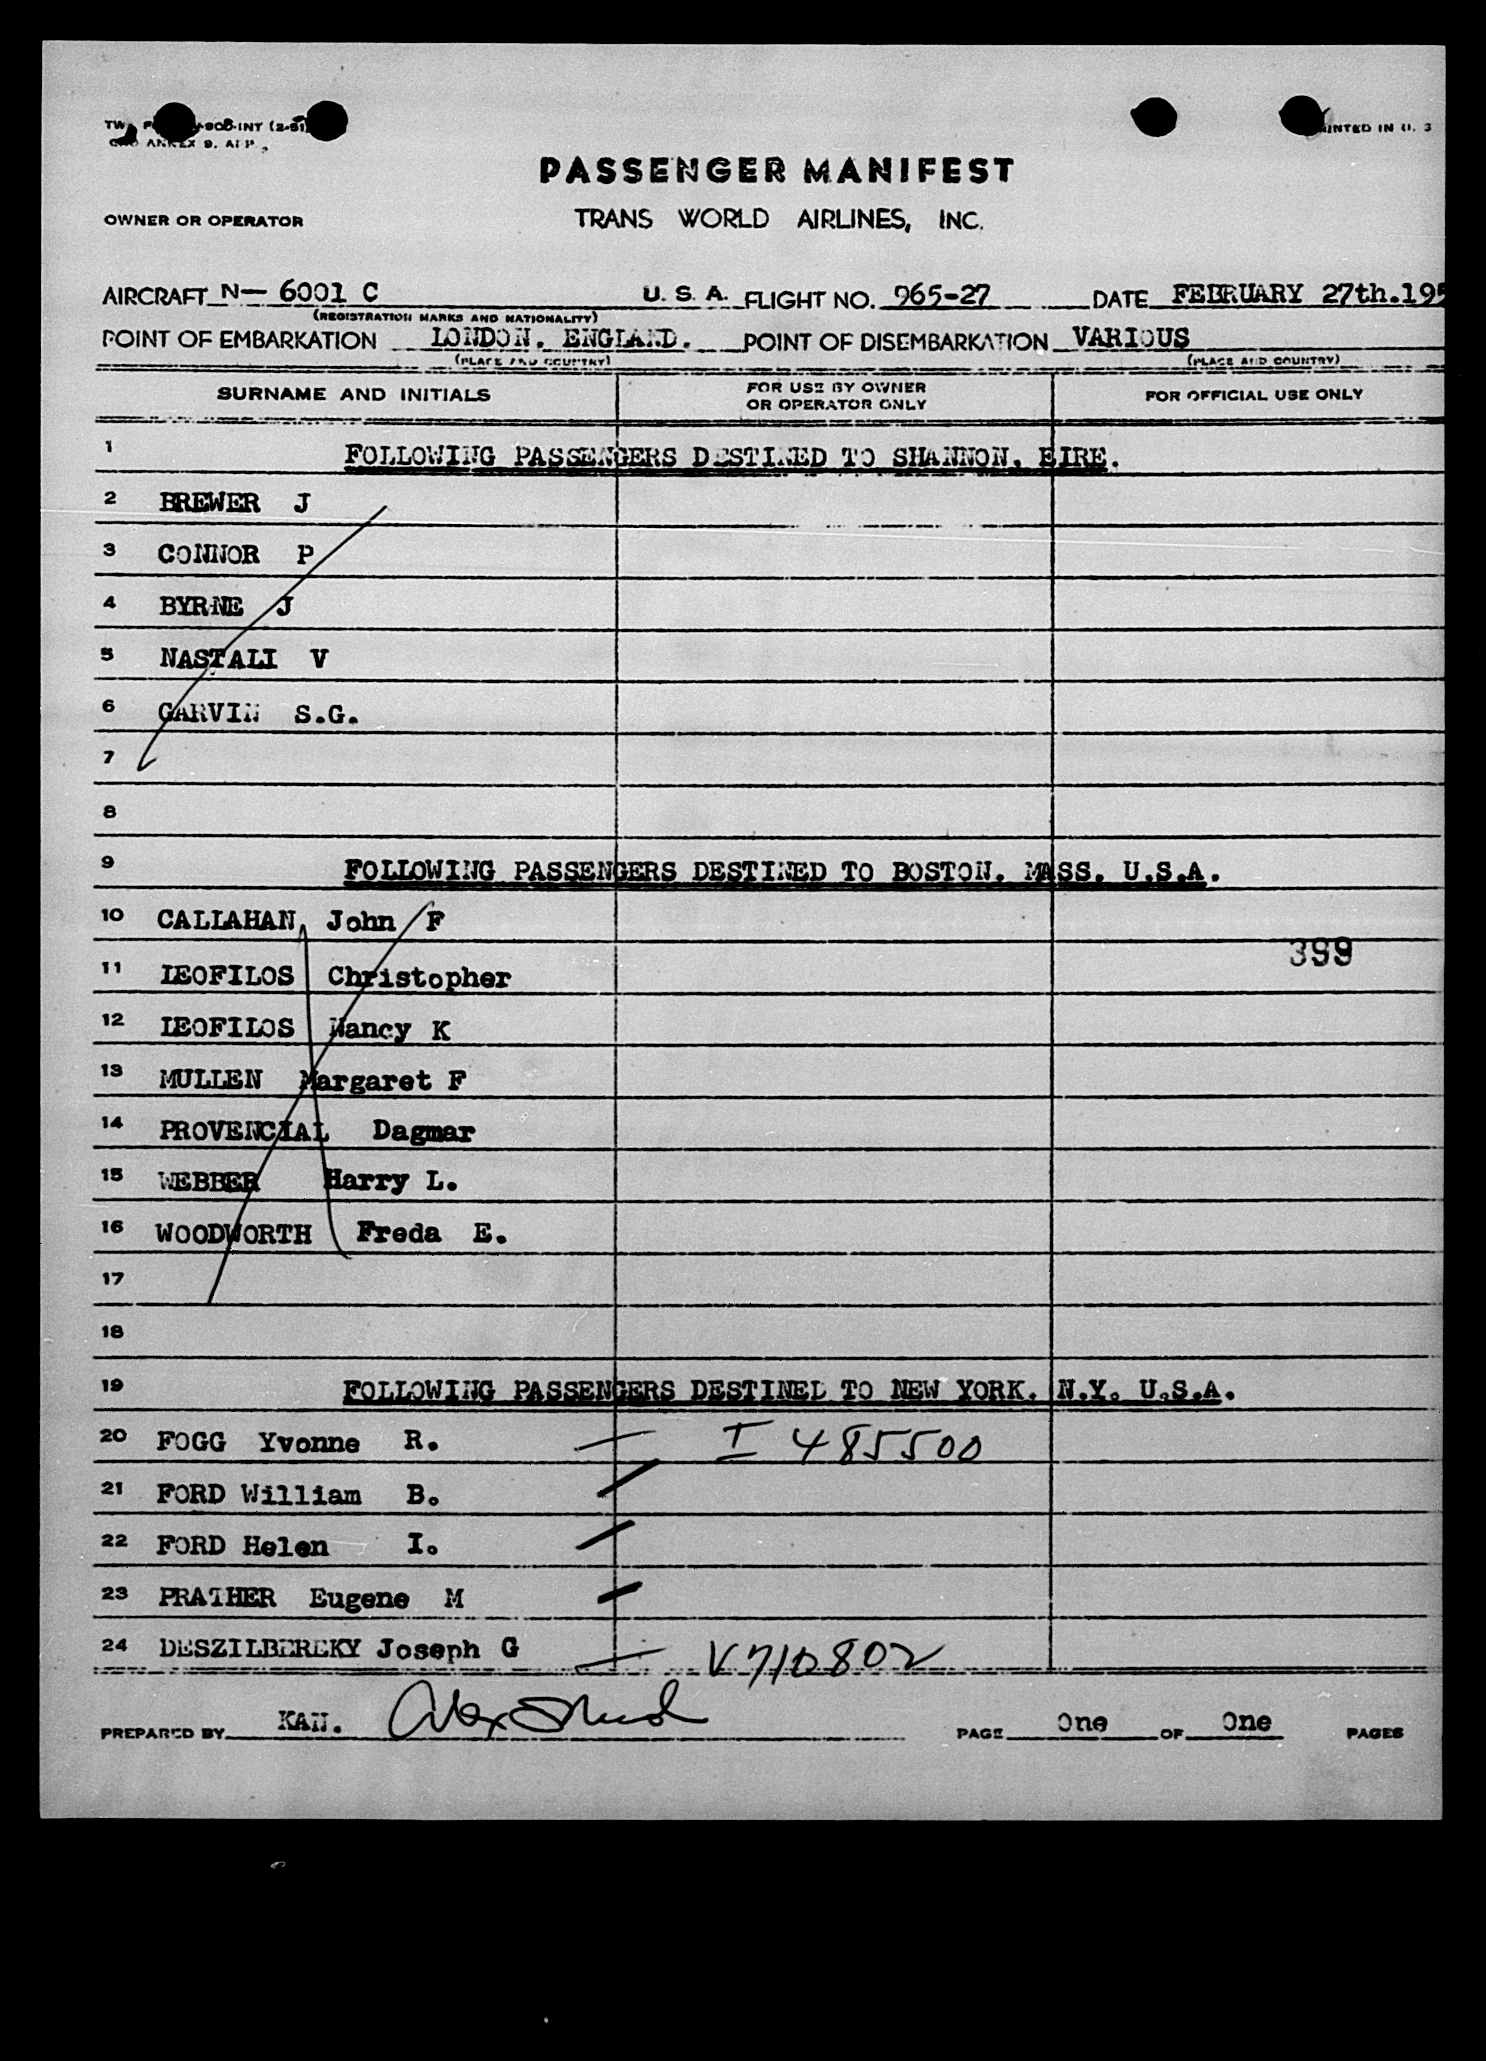 PASSENGER MANIFEST
OWNER OR OPERATOR TRANS WORLD AIRLINES, INC.
AIRCRAFT N- 6001 C U. S. A. FLIGHT NO. 965-27 DATE FEBRUARY 27th.195
(REGISTRATION MARKS AND NATIONALITY)
POINT OF EMBARKATION LONDON. ENGLAND. POINT OF DISEMBARKATION VARIOUS
(PLACE AND COUNTRY) (PLACE AND COUNTRY)
SURNAME AND INITIALS FOR USE BY OWNER OR OPERATOR ONLY FOR OFFICIAL USE ONLY
1 FOLLOWING PASSENGERS DESTINED TO SHANNON. EIRE.
2 BREWER J
3 CONNOR P
4 BYRNE J
5 NASTALI V
6 GARVIN S.G.
7
8
9 FOLLOWING PASSENGERS DESTINED TO BOSTON. MASS. U.S.A.
10 CALLAHAN, John F
399
11 LEOFILOS Christopher
12 LEOFILOS Nancy K
13 MULLEN Margaret F
14 PROVENCIAL Dagmar
15 WEBBER Harry L.
16 WOODWORTH Freda E.
17
18
19 FOLLOWING PASSENGERS DESTINED TO NEW YORK. N.Y. U.S.A.
20 FOGG Yvonne R. I 485500
21 FORD William B.
22 FORD Helen I.
23 PRATHER Eugene M
24 DESZILBEREKY Joseph G V710802
PREPARED BY KAN. PAGE One OF One PAGES